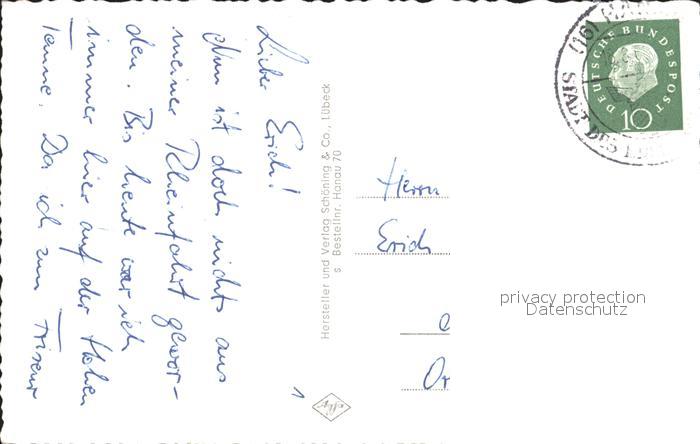 Lieber Erich!
Nun ist doch nichts aus
meiner Rheinfahrt gewor-
den. Bis heute war ich
immer hier auf der Hohen
Tanne. Da ich zum Friseur
Hersteller und Verlag Schöning & Co., Lübeck
s Bestellnr. Hanau 70
Herrn
Erich
privacy protection
Datenschutz
(16)
DEUTSCHE BUNDESPOST
10
STADT DES